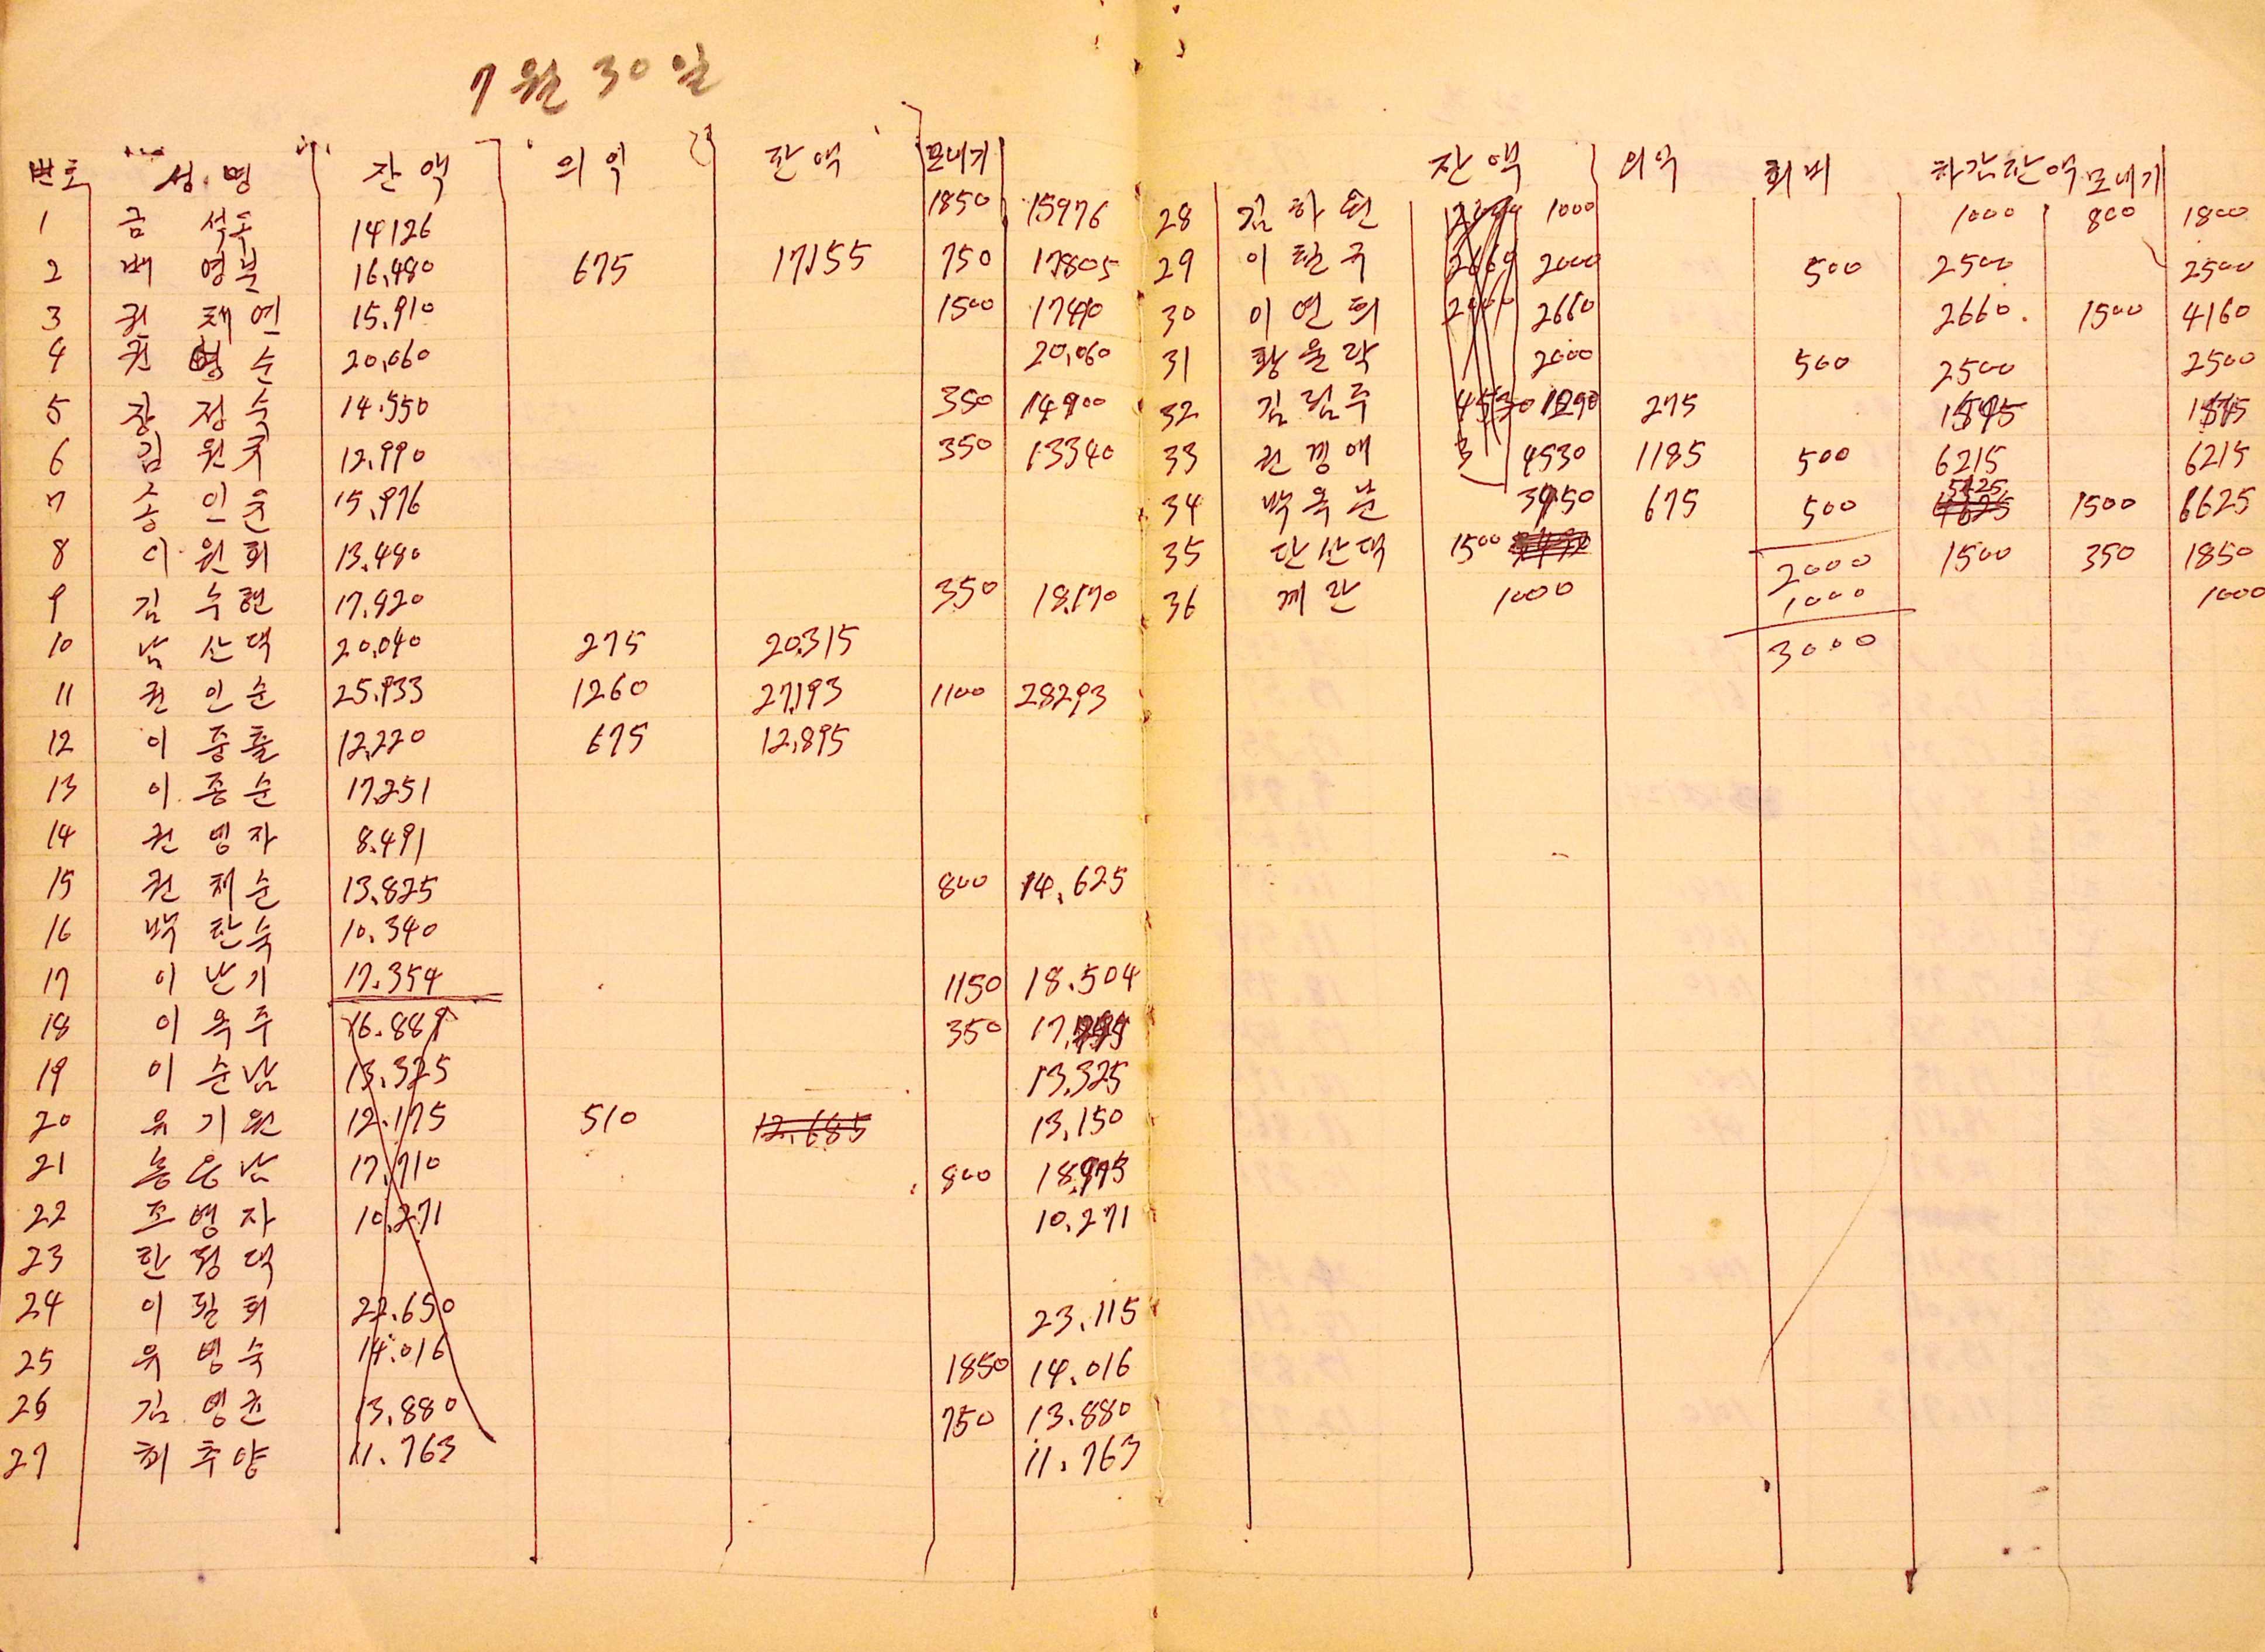 7월 30일
번호 성명 잔액 의약 잔액 모내기
1 금석도 14126 1850 15976
2 배영분 16,480 675 17,155 750 17,805
3 권채연 15,910 1500 17410
4 권영순 20,060 20,060
5 장정숙 14,550 350 14900
6 김원국 12,990 350 13340
7 송인순 15,976
8 이원희 13,480
9 김수현 17,920 350 18,170
10 남산댁 20,040 275 20,315
11 권인순 25,933 1260 27,193 1100 28293
12 이중출 12,220 675 12,895
13 이종순 17,251
14 권영자 8,491
15 권채순 13,825 800 14,625
16 박탄숙 10,340
17 이난기 17,354 1150 18,504
18 이옥주 16,889 350
19 이순남 13,325 13,325
20 유기원 12,175 510 12,685 13,150
21 17,710 800
22 조병자 10,271 10,271
23 한정댁
24 이필희 22,650 23,115
25 유병숙 14,016 1850 14,016
26 김영순 13,880 750 13,880
27 최추양 11,763 11,763
잔액 의약 회비 차감잔액 모내기
28 김하원 1000 1000 800 1800
29 이탄국 2000 500 2500 2500
30 이연희 2660 2660 1500 4160
31 황윤락 2000 500 2500 2500
32 김림주 4530 275
33 권경애 3 4530 1185 500 6215 6215
34 백옥난 3450 675 500 5125 1500 6625
35 단산댁 1500 1500 350 1850
36 계란 1000 1000
2000
1000
3000